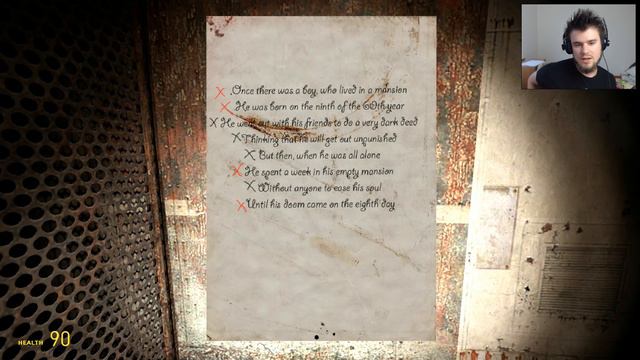 X Once there was a boy, who lived in a mansion
X He was born on the ninth of the 60th year
X He went out with his friends to do a very dark deed
X Thinking that he will get out unpunished
X But then, when he was all alone
X He spent a week in his empty mansion
X Without anyone to ease his soul
X Until his doom came on the eighth day
HEALTH 90